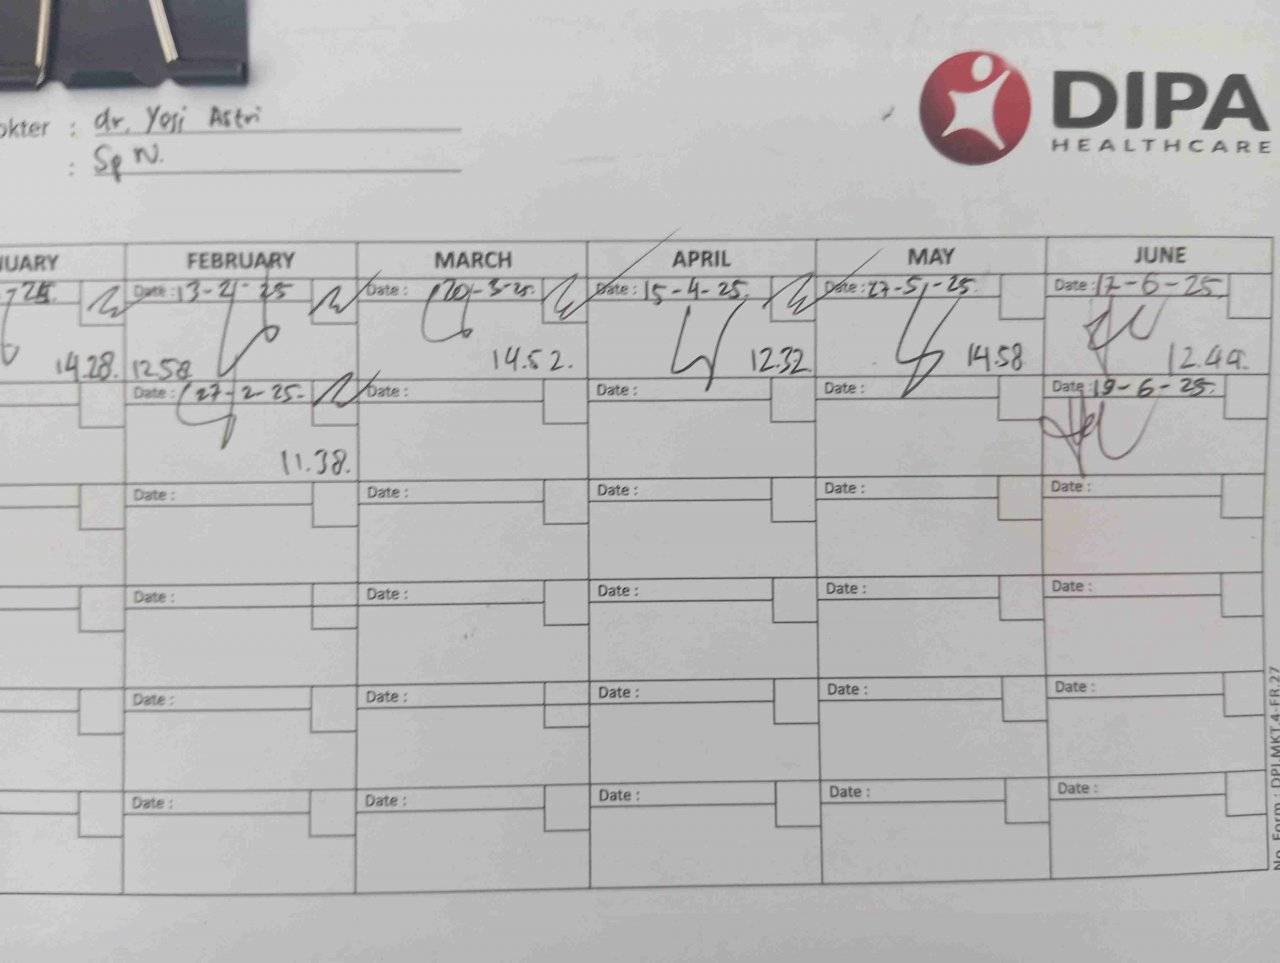 DIPA
HEALTHCARE
okter : dr. Yosi Astri
: Sp N.
UARY FEBRUARY MARCH APRIL MAY JUNE
25 Date : 13-2-25 Date : 20-3-25 Date : 15-4-25 Date : 27-5-25 Date : 17-6-25
14.28. 12.58 14.52. 12.32 14.58 12.44.
Date : 27-2-25 Date : Date : Date : Date : 19-6-25
11.38.
Date : Date : Date : Date : Date :
Date : Date : Date : Date : Date :
Date : Date : Date : Date : Date :
Date : Date : Date : Date : Date :
No. Form : DPI.MKT.4-FR.27